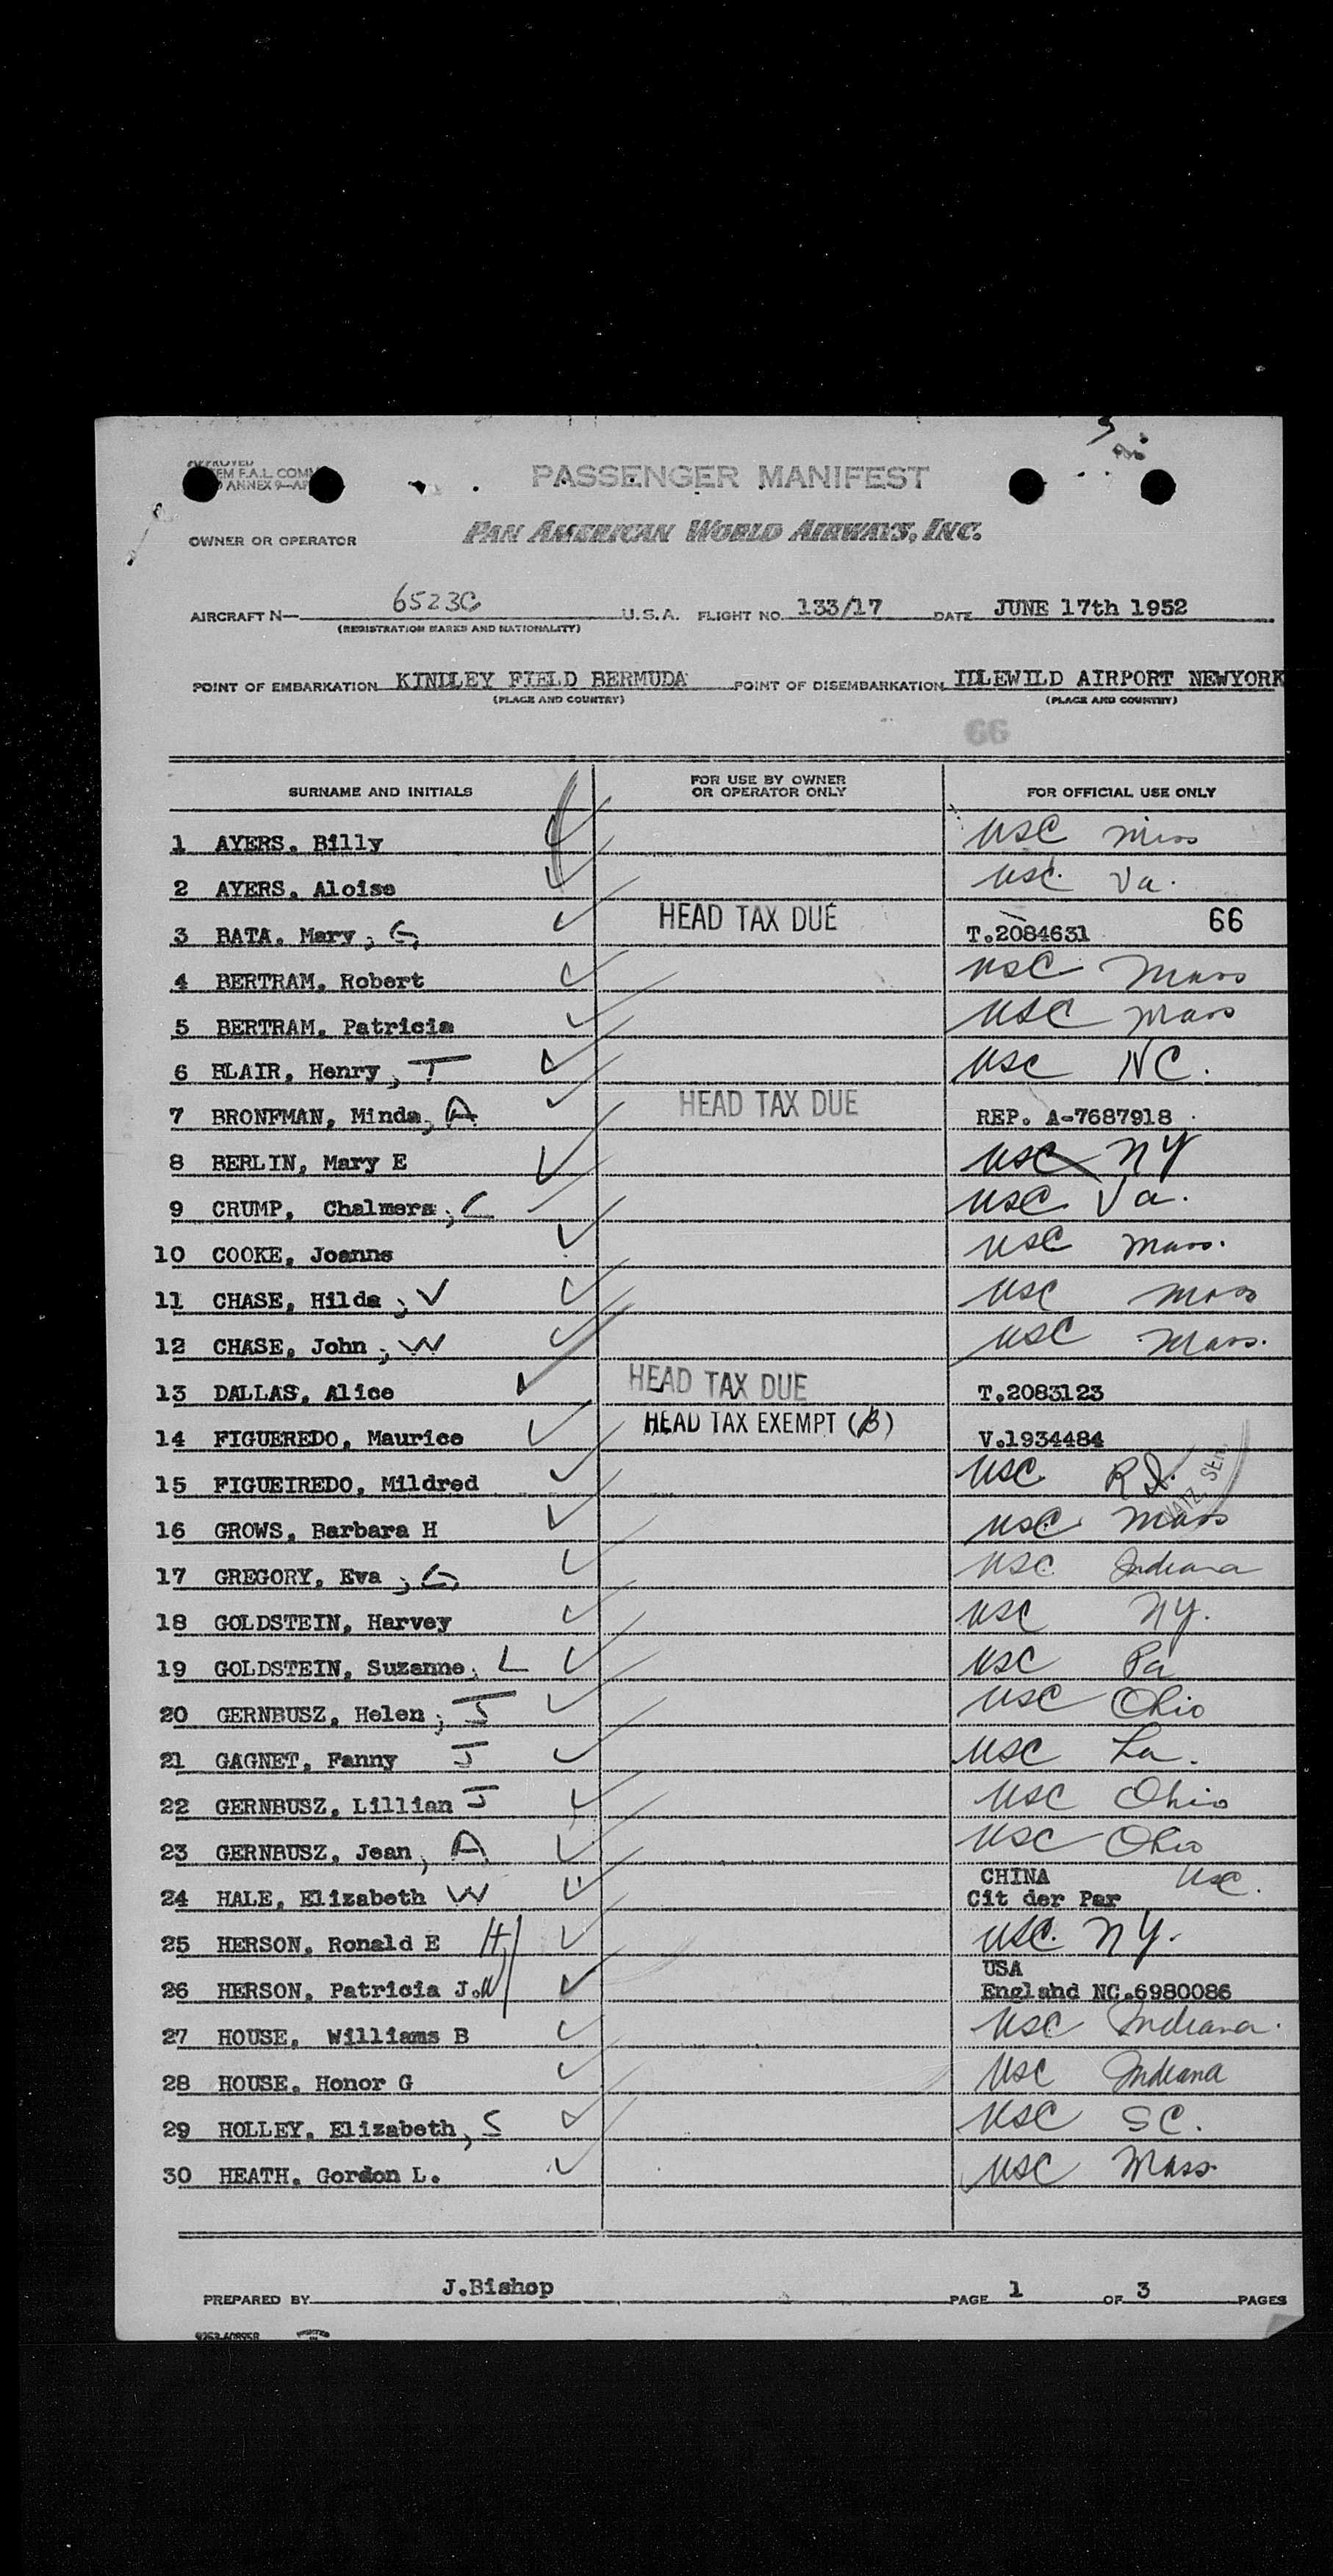 APPROVED
F.A.L. COMM
ANNEX 9—AP
PASSENGER MANIFEST
OWNER OR OPERATOR PAN AMERICAN WORLD AIRWAYS, INC.
AIRCRAFT N— 6523C U.S.A. FLIGHT NO. 133/17 DATE JUNE 17th 1952
(REGISTRATION MARKS AND NATIONALITY)
POINT OF EMBARKATION KINDLEY FIELD BERMUDA POINT OF DISEMBARKATION IDLEWILD AIRPORT NEWYORK
(PLACE AND COUNTRY) (PLACE AND COUNTRY)
66
SURNAME AND INITIALS FOR USE BY OWNER OR OPERATOR ONLY FOR OFFICIAL USE ONLY
1 AYERS, Billy USC Miss
2 AYERS, Aloise USC Va.
3 BATA, Mary, G HEAD TAX DUE T.2084631 66
4 BERTRAM, Robert USC Mass
5 BERTRAM, Patricia USC Mass
6 BLAIR, Henry, T USC NC.
7 BRONFMAN, Minda, A HEAD TAX DUE REP. A-7687918
8 BERLIN, Mary E USC NY
9 CRUMP, Chalmers, C USC Va.
10 COOKE, Joanne USC Mass.
11 CHASE, Hilda, V USC Mass
12 CHASE, John, W USC Mass.
13 DALLAS, Alice HEAD TAX DUE T.2083123
14 FIGUEREDO, Maurice HEAD TAX EXEMPT (B) V.1934484
15 FIGUEIREDO, Mildred USC R.I.
16 GROWS, Barbara H USC Mass
17 GREGORY, Eva, G USC Indiana
18 GOLDSTEIN, Harvey USC NY.
19 GOLDSTEIN, Suzanne, L USC Pa
20 GERNBUSZ, Helen, J USC Ohio
21 GAGNET, Fanny J USC La.
22 GERNBUSZ, Lillian J USC Ohio
23 GERNBUSZ, Jean, A USC Ohio
CHINA USC.
24 HALE, Elizabeth W Cit der Par
25 HERSON, Ronald E H USC. NY.
USA
26 HERSON, Patricia J.W England NC.6980086
27 HOUSE, Williams B USC Indiana.
28 HOUSE, Honor G USC Indiana
29 HOLLEY, Elizabeth, S USC SC.
30 HEATH, Gordon L. USC Mass.
PREPARED BY J.Bishop PAGE 1 OF 3 PAGES